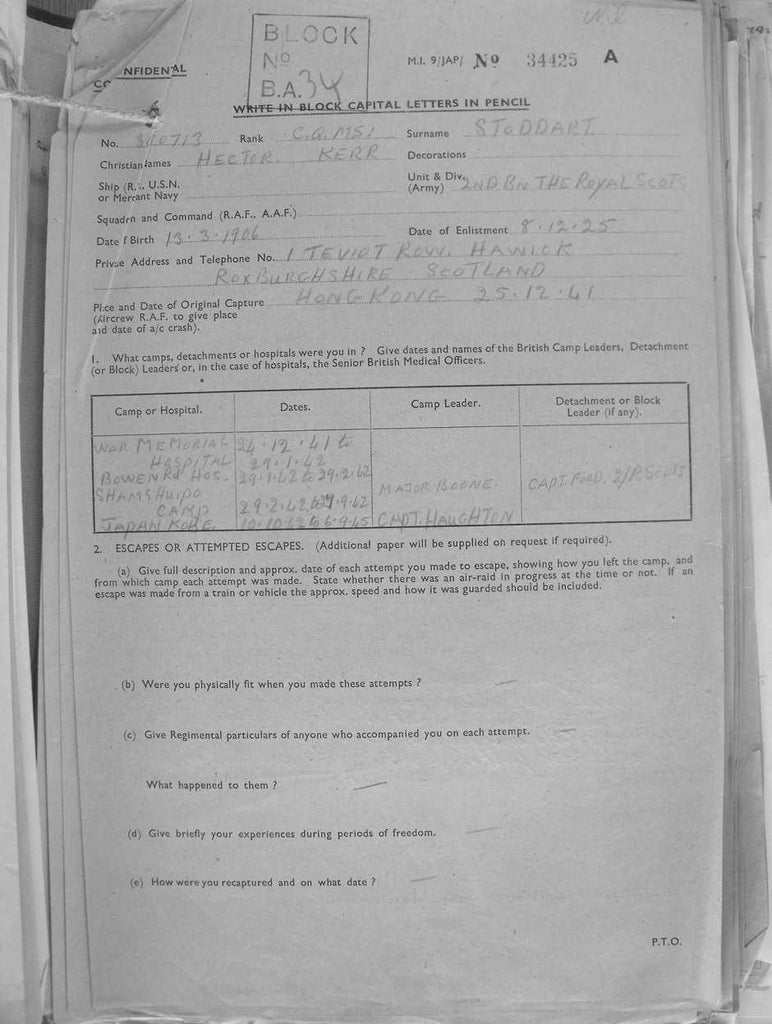 BLOCK
Nº
B.A. 34
CONFIDENTIAL
M.I. 9/JAP/ Nº 34425 A
WRITE IN BLOCK CAPITAL LETTERS IN PENCIL
No. Rank C.Q.M.S. Surname STODDART
Christian Names HECTOR. KERR Decorations
Ship (R.N., U.S.N. or Merchant Navy Unit & Div. (Army) 2ND BN THE ROYAL SCOTS
Squadrn and Command (R.A.F., A.A.F.)
Date of Birth 13.3.1906 Date of Enlistment 8.12.25
Private Address and Telephone No. 1 TEVIOT ROW. HAWICK
ROXBURGHSHIRE SCOTLAND
Place and Date of Original Capture HONG KONG 25.12.41
(Aircrew R.A.F. to give place
and date of a/c crash).
1. What camps, detachments or hospitals were you in ? Give dates and names of the British Camp Leaders, Detachment
(or Block) Leaders or, in the case of hospitals, the Senior British Medical Officers.
Camp or Hospital. Dates. Camp Leader. Detachment or Block Leader (if any).
WAR MEMORIAL 24.12.41 to
HOSPITAL 29.1.42
BOWEN RD HOS. 29.1.42 to 29.2.42
SHAMSHUIPO MAJOR BOONE. CAPT. FORD. 2/R SCOTS
CAMP 29.2.42 to .9.42
JAPAN KOBE. 10.10.42 to 6.9.45 CAPT. HAUGHTON
2. ESCAPES OR ATTEMPTED ESCAPES. (Additional paper will be supplied on request if required).
(a) Give full description and approx. date of each attempt you made to escape, showing how you left the camp, and
from which camp each attempt was made. State whether there was an air-raid in progress at the time or not. If an
escape was made from a train or vehicle the approx. speed and how it was guarded should be included.
(b) Were you physically fit when you made these attempts ? —
(c) Give Regimental particulars of anyone who accompanied you on each attempt. —
What happened to them ? —
(d) Give briefly your experiences during periods of freedom. —
(e) How were you recaptured and on what date ? —
P.T.O.